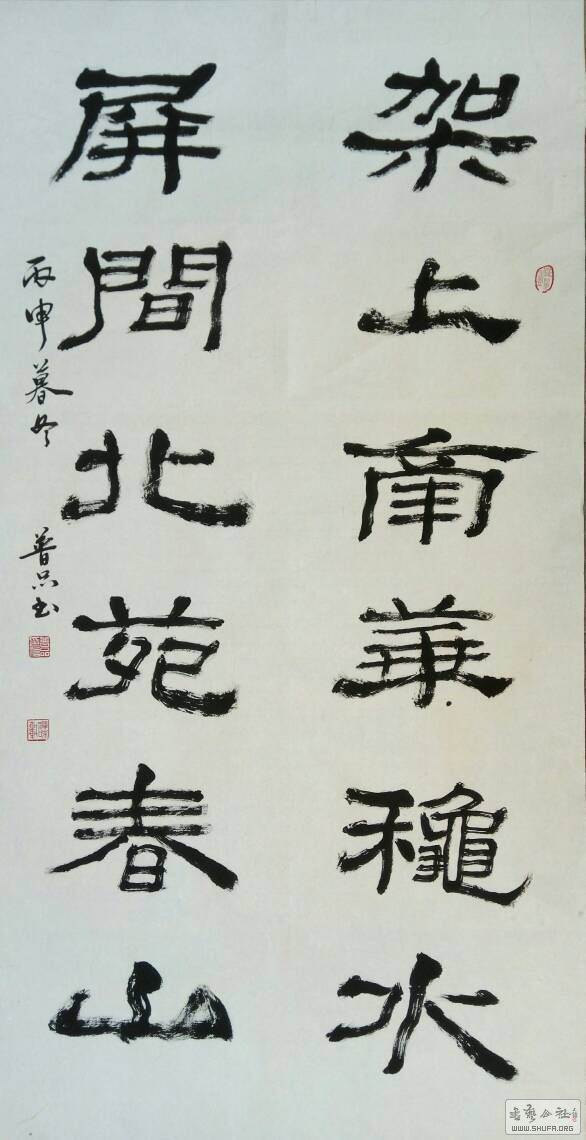 架上南華龝水
屏間北苑春山
丙申暮冬
书藝公社
WWW.SHUFA.ORG